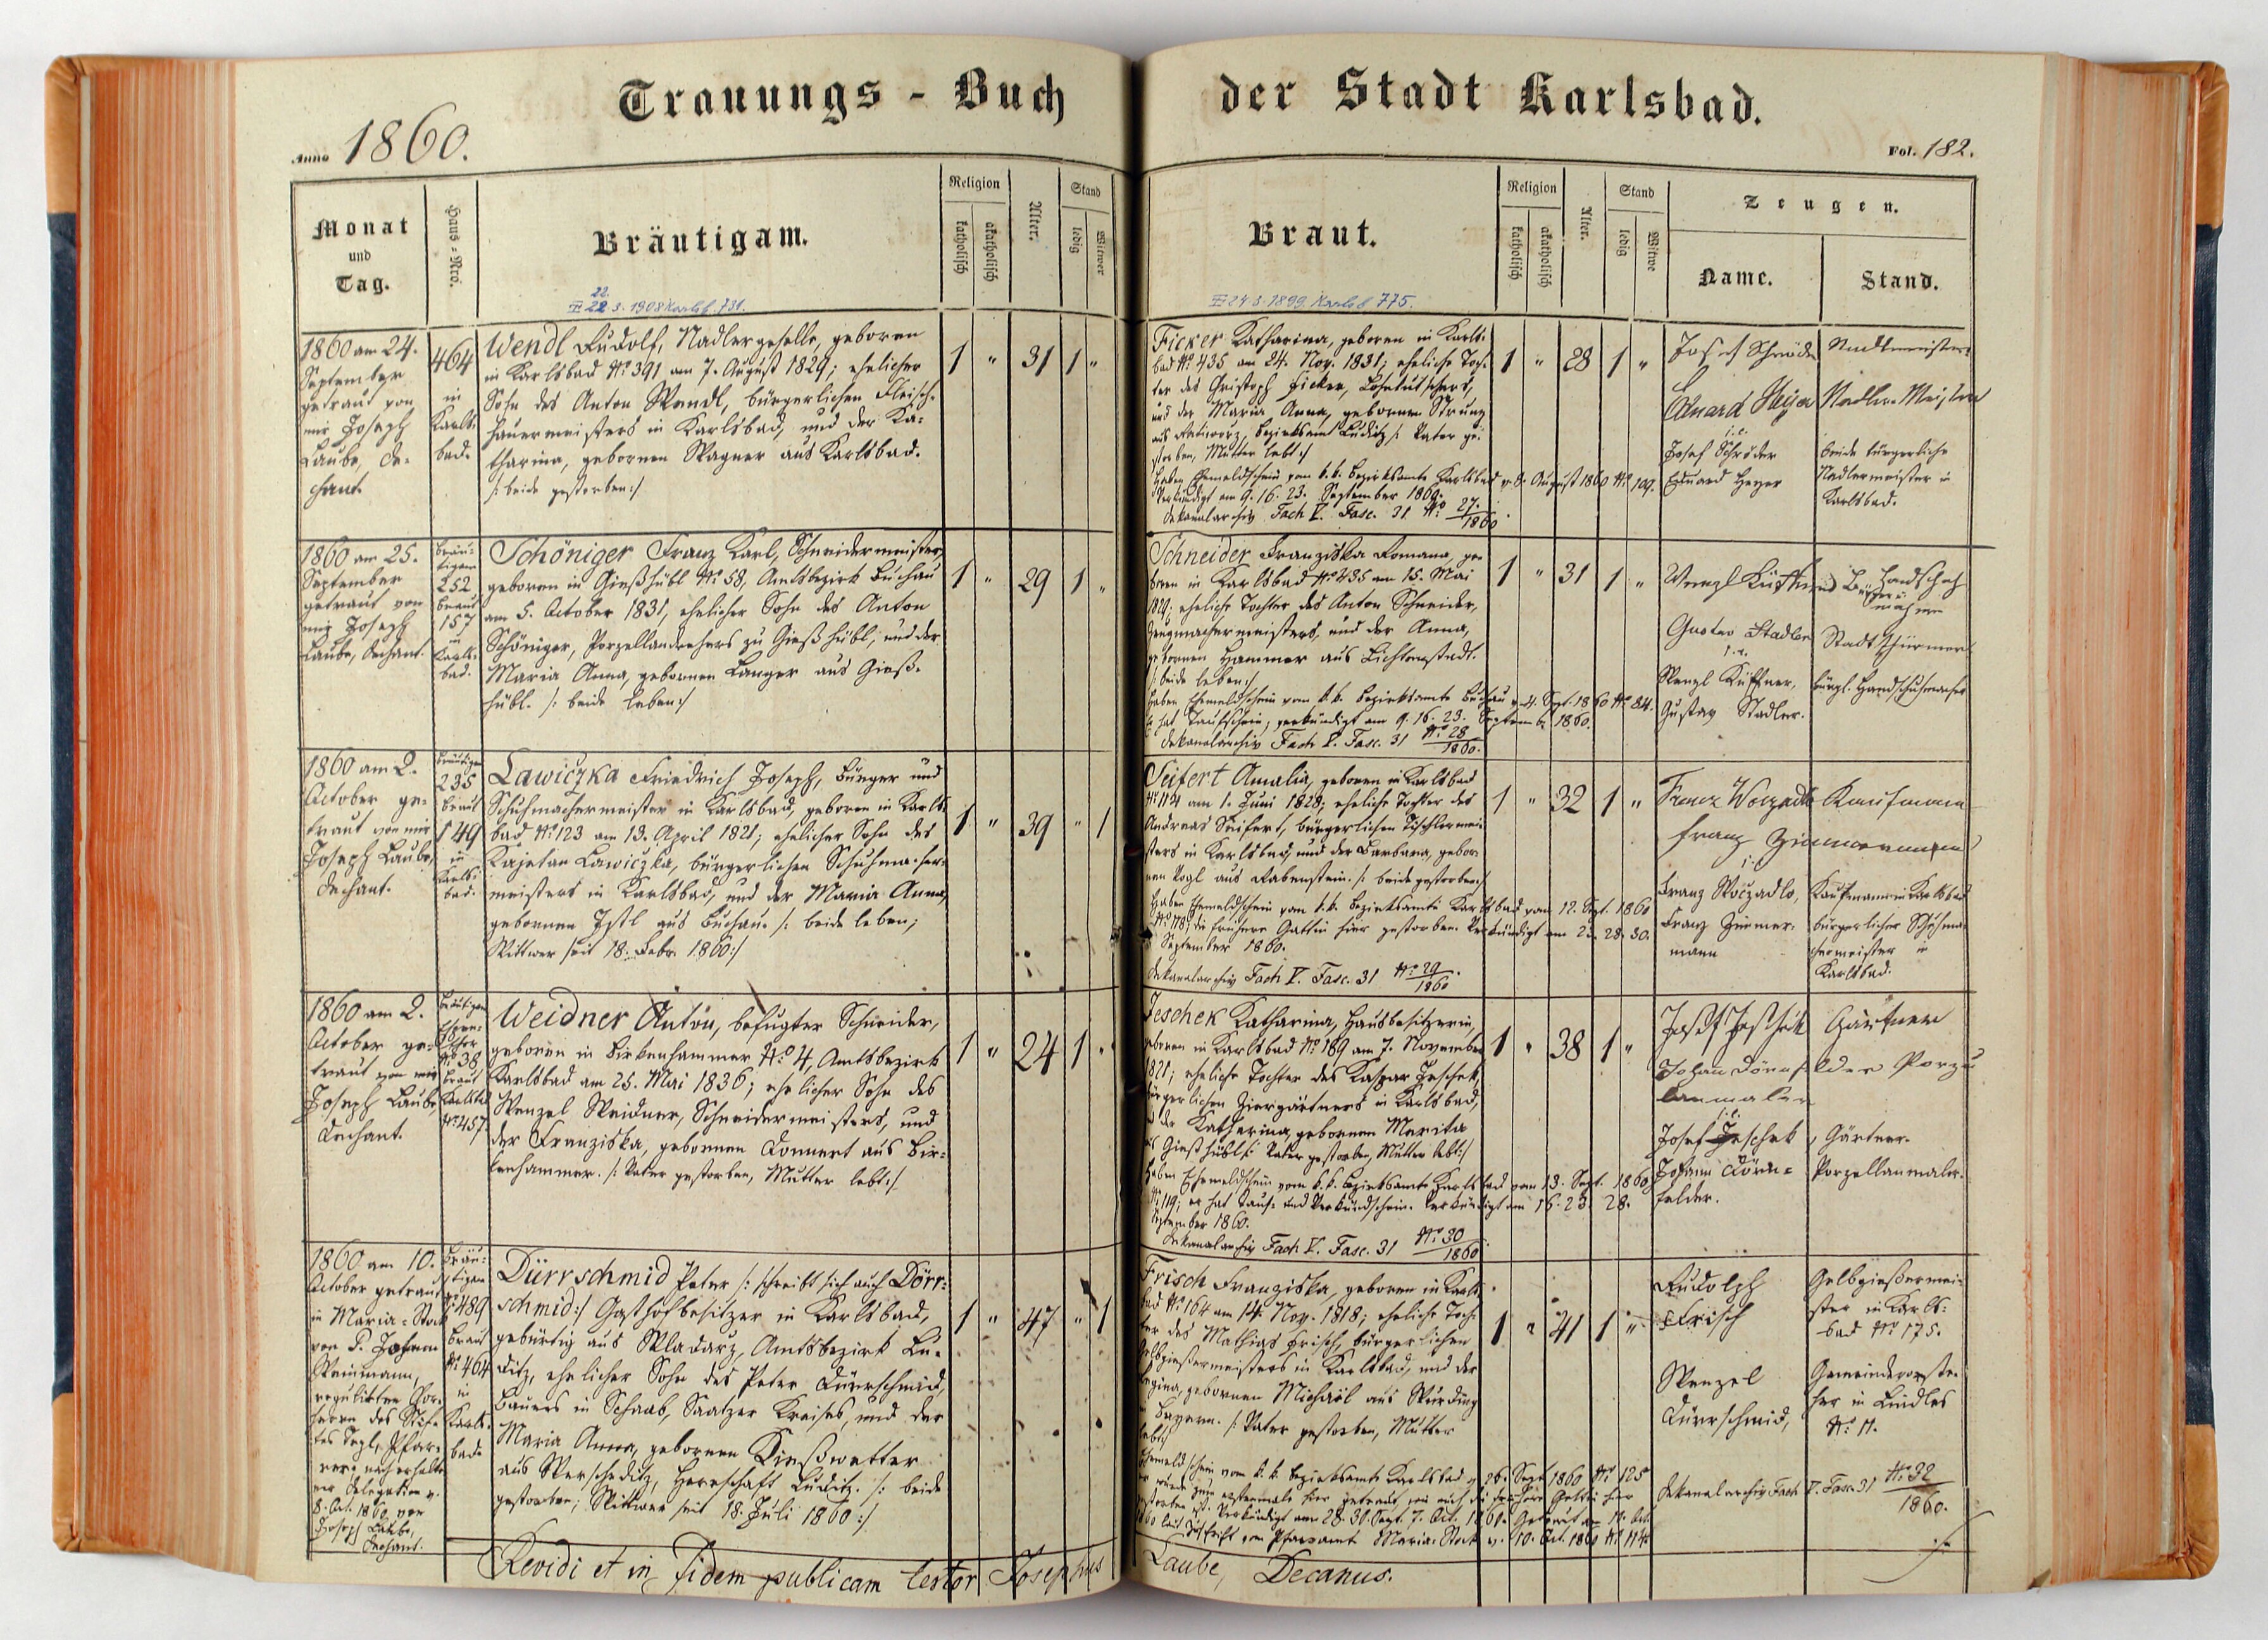 Trauungs - Buch
der Stadt Karlsbad.
Anno 1860.
Fol. 182.
Monat
und
Tag.
Haus-Nro.
Bräutigam.
Religion
katholisch
akatholisch
Alter.
Stand
ledig
Witwer
Braut.
Religion
katholisch
akatholisch
Alter.
Stand
ledig
Witwe
Zeugen.
Name.
Stand.
1860 am 24.
September
getraut von
mir Joseph
Laube, De-
chant.
464
in
Karls-
bad.
Wendl Rudolf, Nadlergeselle, geboren
in Karlsbad No. 391 am 7. August 1829; ehelicher
Sohn des Anton Wendl, bürgerlichen Fleisch-
hauermeisters in Karlsbad, und der Ka-
tharina, gebornen Wagner aus Karlsbad.
/: beide gestorben :/
1 " 31 1 "
Ficker Katharina, geboren in Karls-
bad No. 435 am 24. Nov. 1831; eheliche Toch-
ter des Christoph Ficker, Lohnkutschers,
und der Maria Anna, gebornen Strunz
Bezirksamt Luditz /: Vater ge-
storben, Mutter lebt :/
Haben Ehemeldschein vom k. k. Bezirksamte Karlsbad v. 8. August 1860 No. 109.
Verkündigt am 9. 16. 23. September 1860.
Dekanalarchiv Fach V. Fasc. 31 No. 27/1860.
1 " 28 1 "
Josef Schröder Nadlermeister
Eduard Heyer Nadler-Meister
i. e.
Josef Schröder
Eduard Heyer
beide bürgerliche
Nadlermeister in
Karlsbad.
1860 am 25.
September
getraut von
mir Joseph
Laube, Dechant.
Bräu-
tigam
252
Braut
157
in
Karls-
bad.
Schöniger Franz Karl, Schneidermeister,
geboren in Gießhübl No. 58, Amtsbezirk Buchau
am 5. October 1831, ehelicher Sohn des Anton
Schöniger, Porzellandrehers zu Gießhübl, und der
Maria Anna, gebornen Langer aus Gieß-
hübl. /: beide leben :/
1 " 29 1 "
Schneider Franziska Romana, ge-
boren in Karlsbad No. 435 am 15. Mai
1829; eheliche Tochter des Anton Schneider,
Zeugmachermeisters, und der Anna,
gebornen Hammer aus Lichtenstadt.
/: beide leben :/
Haben Ehemeldschein vom k. k. Bezirksamte Buchau v. 4. Sept. 1860 No. 84.
Er hat Taufschein, verkündigt am 9. 16. 23. September 1860.
Dekanalarchiv Fach V. Fasc. 31 No. 28/1860.
1 " 31 1 "
Gustav Stadler Stadtthürmer
i. e.
Wenzl Küffner, bürgl. Handschuhmacher
Gustav Stadler.
1860 am 2.
October ge-
traut von mir
Joseph Laube,
Dechant.
Bräutigam
235
Braut
149
in
Karls-
bad.
Lawiczka Friedrich Joseph, Bürger und
Schuhmachermeister in Karlsbad, geboren in Karls-
bad No. 123 am 13. April 1821; ehelicher Sohn des
Kajetan Lawiczka, bürgerlichen Schuhmacher-
meisters in Karlsbad, und der Maria Anna,
gebornen Istl aus Buchau. /: beide leben;
Wittwer seit 18. Febr. 1860 :/
1 " 39 " 1
Seifert Amalia, geboren in Karlsbad
No. 114 am 1. Juni 1828; eheliche Tochter des
Andreas Seifert, bürgerlichen Tischlermei-
sters in Karlsbad, und der Barbara, gebor-
nen Vogl aus Rabenstein. /: beide gestorben :/
Haben Ehemeldschein vom k. k. Bezirksamte Karlsbad vom 12. Sept. 1860
No. 118; die frühere Gattin hier gestorben. Verkündigt am 23. 28. 30.
September 1860.
Dekanalarchiv Fach V. Fasc. 31 No. 29/1860.
1 " 32 1 "
Franz Woczadlo Kaufmann
Franz Zimmermann
i. e.
Franz Woczadlo, Kaufmann in Karlsbad
Franz Zimmer-
mann
bürgerlicher Schuhma-
chermeister in
Karlsbad.
1860 am 2.
October ge-
traut von mir
Joseph Laube,
Dechant.
Bräutigam
No. 38
Braut
Karlsbad
No. 457
Weidner Anton, befugter Schneider,
geboren in Birkenhammer No. 4, Amtsbezirk
Karlsbad am 25. Mai 1836; ehelicher Sohn des
Wenzel Weidner, Schneidermeisters, und
der Franziska, gebornen Donnert aus Bir-
kenhammer. /: Vater gestorben, Mutter lebt :/
1 " 24 1 "
Jeschek Katharina, Hausbesitzerin,
geboren in Karlsbad No. 189 am 7. November
1821; eheliche Tochter des Kaspar Jeschek,
bürgerlichen Ziergärtners in Karlsbad,
und der Katharina, gebornen Merita
aus Gießhübl /: Vater gestorben, Mutter lebt :/
Haben Ehemeldschein vom k. k. Bezirksamte Karlsbad vom 13. Sept. 1860
No. 119; er hat Tauf- und Verkündschein. Verkündigt am 16. 23. 28.
September 1860.
Dekanalarchiv Fach V. Fasc. 31 No. 30/1860.
1 " 38 1 "
Josef Jeschek Gärtner
Johan Dörnfelder Porzel
lanmaler
i. e.
Josef Jeschek, Gärtner.
Johann Dörn-
felder.
Porzellanmaler.
1860 am 10.
October getraut
in Maria-Stock
von P. Johann
Weinmann,
regulirten Chor-
herrn des Stif-
tes Tepl, Pfar-
rer, nach erhalte-
ner Delegation v.
8. Oct. 1860 von
Joseph Laube,
Dechant.
Bräu-
tigam
No. 489
Braut
No. 464
in
Karls-
bad.
Dürrschmid Peter /: schreibt sich auch Dörr-
schmid :/ Gasthofbesitzer in Karlsbad,
gebürtig aus Skladarz, Amtsbezirk Lu-
ditz, ehelicher Sohn des Peter Dürrschmid,
Bauers in Schaab, Saatzer Kreises, und der
Maria Anna, gebornen Kinßwetter
aus Werscheditz, Herrschaft Luditz. /: beide
gestorben; Wittwer seit 18. Juli 1860 :/
1 " 47 " 1
Frisch Franziska, geboren in Karls-
bad No. 164 am 14. Nov. 1818; eheliche Toch-
ter des Mathias Frisch, bürgerlichen
Gelbgießermeisters in Karlsbad, und der
Regina, gebornen Michäel aus
in Bayern. /: Vater gestorben, Mutter
lebt :/
Ehemeldschein vom k. k. Bezirksamte Karlsbad v. 26. Sept. 1860 No. 125
gestorben ist. Verkündigt am 28. 30. Sept. 7. Oct. 1860. Getraut am 10. Oct.
1860 laut Zuschrift vom Pfarramte Maria-Stock v. 10. Oct. 1860 No. 114.
1 " 41 1 "
Rudolph
Frisch
Gelbgießermei-
ster in Karls-
bad No. 175.
Wenzel
Dürrschmid,
Gemeindevorste-
her in Lindles
No. 11.
Dekanalarchiv Fach V. Fasc. 31 No. 32/1860.
Revidi et in fidem publicam testor Josephus
Laube, Decanus.